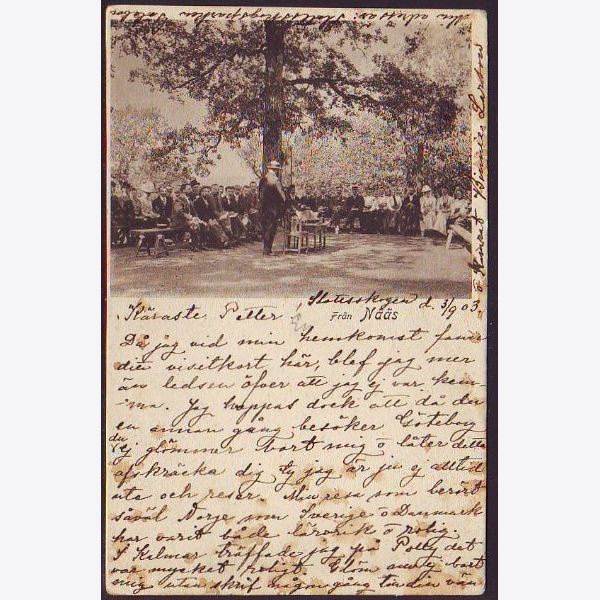 Slottsskogen d. 3/9 03.
Käraste Petter!
Från Nääs
Då jag vid min hemkomst fann
ditt visitkort här, blef jag mer
än ledsen öfver att jag ej var hem-
ma. Jag hoppas dock att då du
en annan gång besöker Göteborg
du ej glömmer bort mig o låter detta
afskräcka dig ty jag är ju ej alltid
ute och reser. Min resa som berört
såväl Norje som Sverige o Danmark
har varit både lärorik o rolig.
I Kalmar träffade jag på Polly det
var mycket roligt. Glöm ej bort
mig utan skrif någon gång till din vän